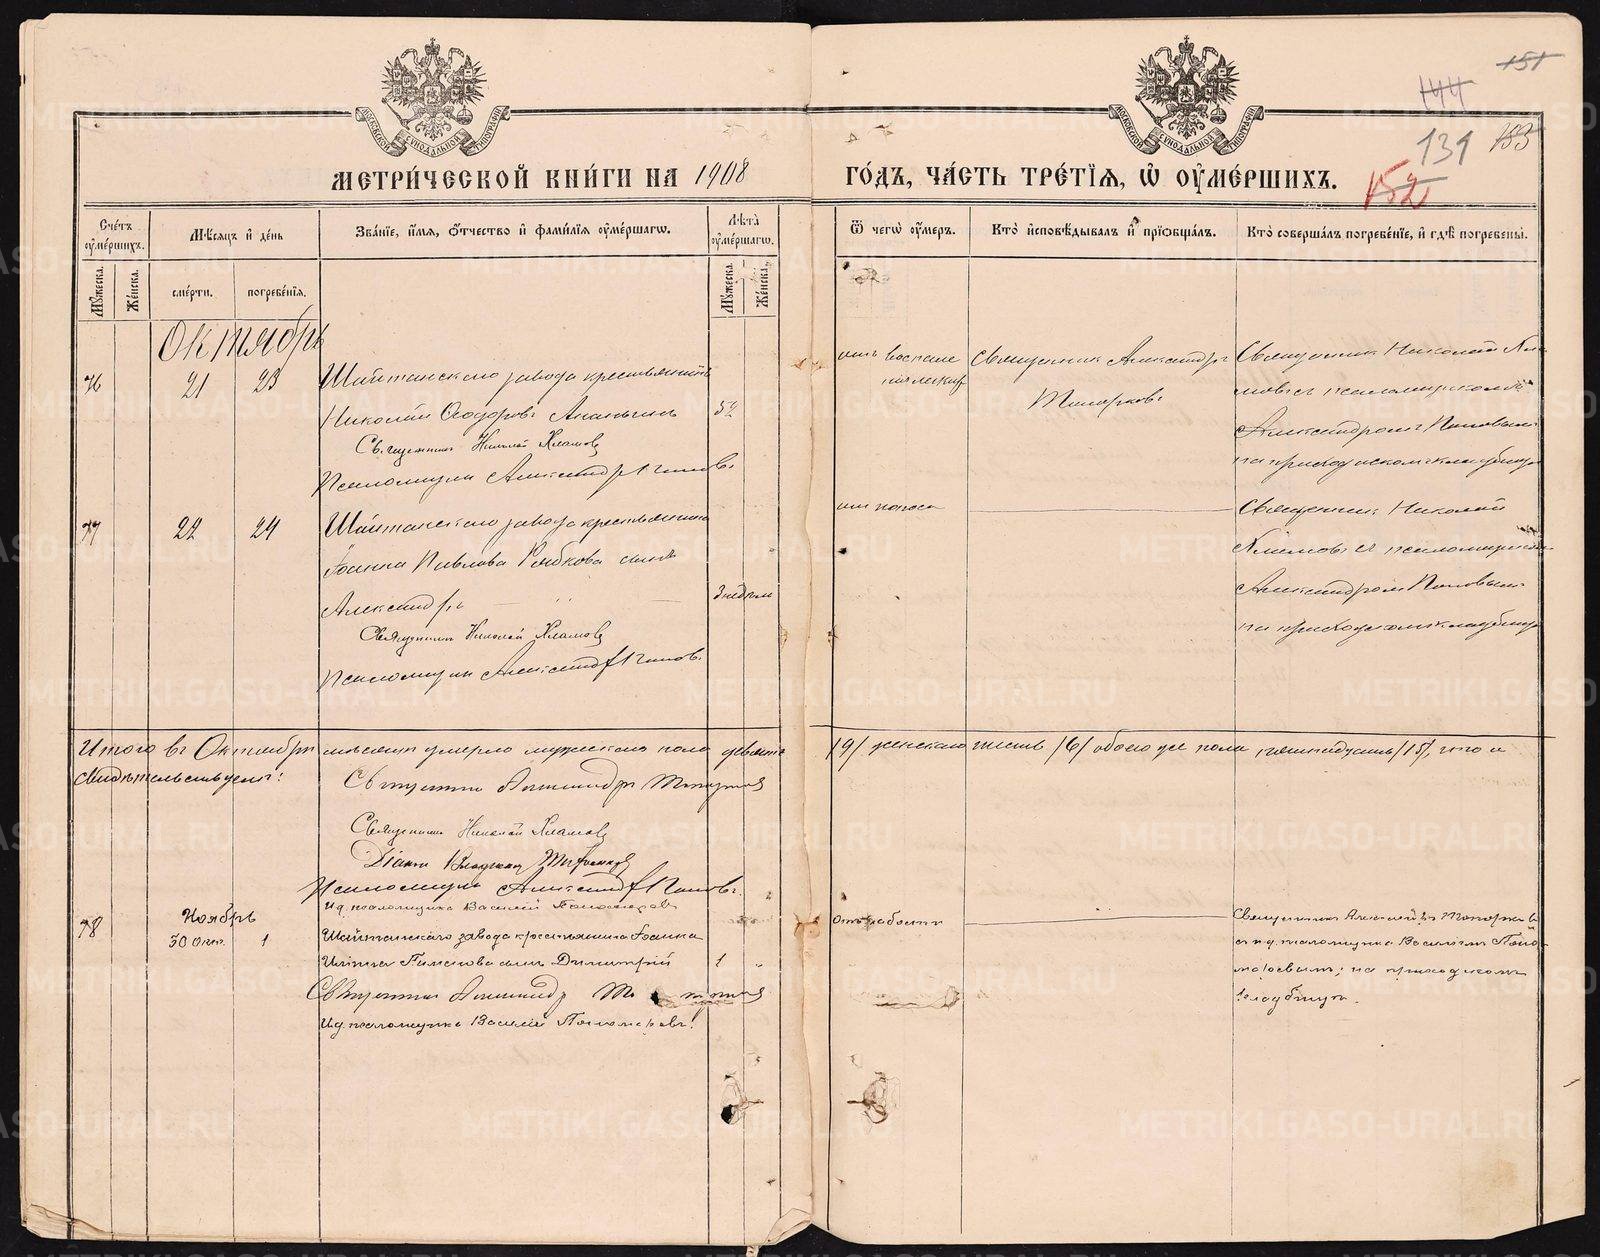 151
144
131
153
152
МОСКОВСКОЙ СѴНОДАЛЬНОЙ ТИПОГРАФІИ
МОСКОВСКОЙ СѴНОДАЛЬНОЙ ТИПОГРАФІИ
МЕТРИ́ЧЕСКОЙ КНИ́ГИ НА 1908
ГО́ДЪ, ЧА́СТЬ ТРЕ́ТЇѦ, Ѡ҆ ОУ҆МЕ́РШИХЪ.
Сче́тъ оу҆ме́ршихъ.
Мꙋ́жеска.
Же́нска.
Мѣ́сѧцъ и҆ де́нь
сме́рти.
погребе́нїѧ.
Зва́нїе, и҆́мѧ, ѻ҆́тчество и҆ фами́лїѧ оу҆ме́ршагѡ.
Лѣ́та оу҆ме́ршагѡ.
Мꙋ́жеска.
Же́нска.
Ѿ чегѡ̀ оу҆́меръ.
Кто̀ и҆сповѣ́дывалъ и҆ прїѡбща́лъ.
Кто̀ соверша́лъ погребе́нїе, и҆ гдѣ̀ погребены̀.
Октябрь
76
21
23
Шайтанскаго завода крестьянинъ
Николай Ѳеодоровъ Ананьинъ
52
Священникъ Николай Хламовъ
Псаломщикъ Александръ Поповъ.
отъ воспаленія легких
Священникъ Александръ
Топорковъ
Священникъ Николай Хламовъ съ псаломщикомъ
Александромъ Поповымъ
на приходскомъ кладбищѣ
77
22
24
Шайтанскаго завода крестьянина
Іоанна Павлова Рябкова сынъ
Александръ
3 недѣли
Священникъ Николай Хламовъ
Псаломщикъ Александръ Поповъ.
отъ поноса
Священникъ Николай
Хламовъ съ псаломщикомъ
Александромъ Поповымъ
на приходскомъ кладбищѣ
Итого въ Октябрѣ мѣсяцѣ умерло мужескаго пола девять /9/ женскаго шесть /6/ обоего же пола пятнадцать /15/, что и
свидѣтельствуемъ:
Священникъ Александръ Топорковъ
Священникъ Николай Хламовъ
Псаломщикъ Александръ Поповъ.
И.д. псаломщика Василій Пономаревъ
Ноябрь
78
30 Окт.
1
Шайтанскаго завода крестьянина Іоанна
сынъ Димитрій
1
Священникъ Александръ
И.д. псаломщика Василій Пономаревъ.
отъ слабости
Священникъ Александръ Топорковъ
съ и.д. псаломщика Василіемъ Пономаревымъ; на приходскомъ
кладбищѣ.
METRIKI.GASO-URAL.RU